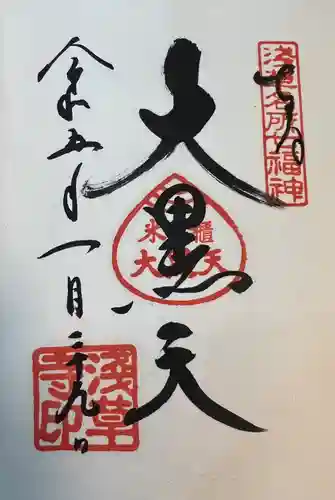 奉拝
浅草名所七福神
大黒天
米櫃
大黒天
令和五年一月二十九日
浅草
寺印